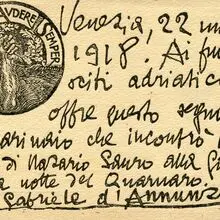 AVDERE SEMPER
Venezia, 22
1918. Ai fu
sciti adriatic
offre questo segn
arinaio che incontrò
di Nazario Sauro alla
a notte del Quarnaro.
Gabriele d'Annunz